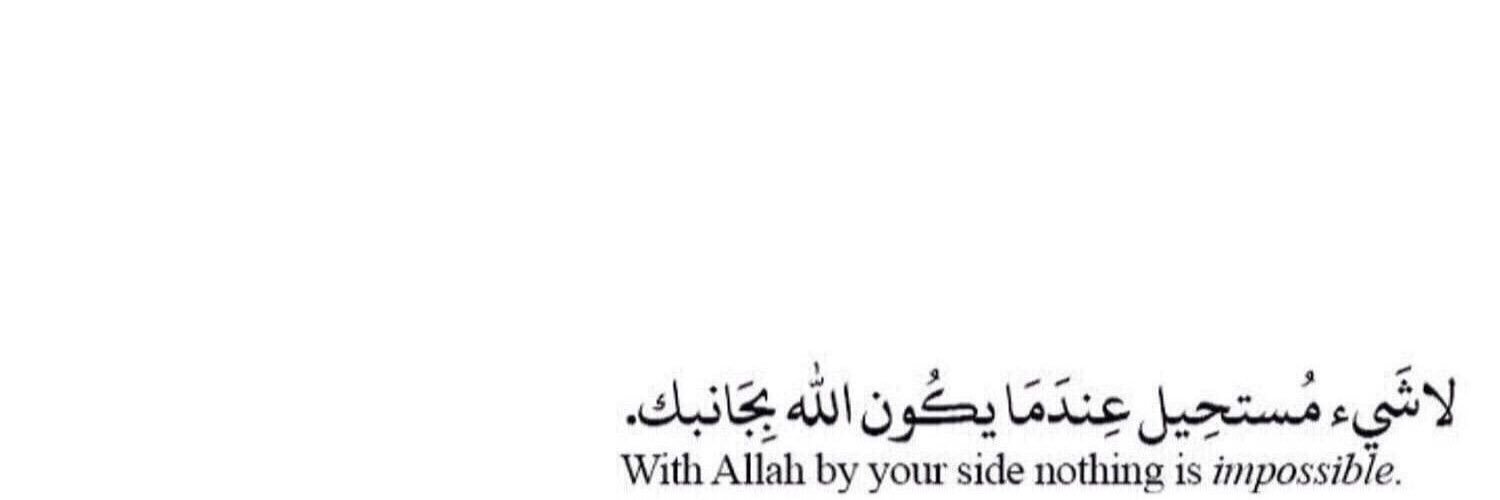 لا شَيء مُستحِيل عِندَمَا يكُون الله بِجَانبك.
With Allah by your side nothing is impossible.